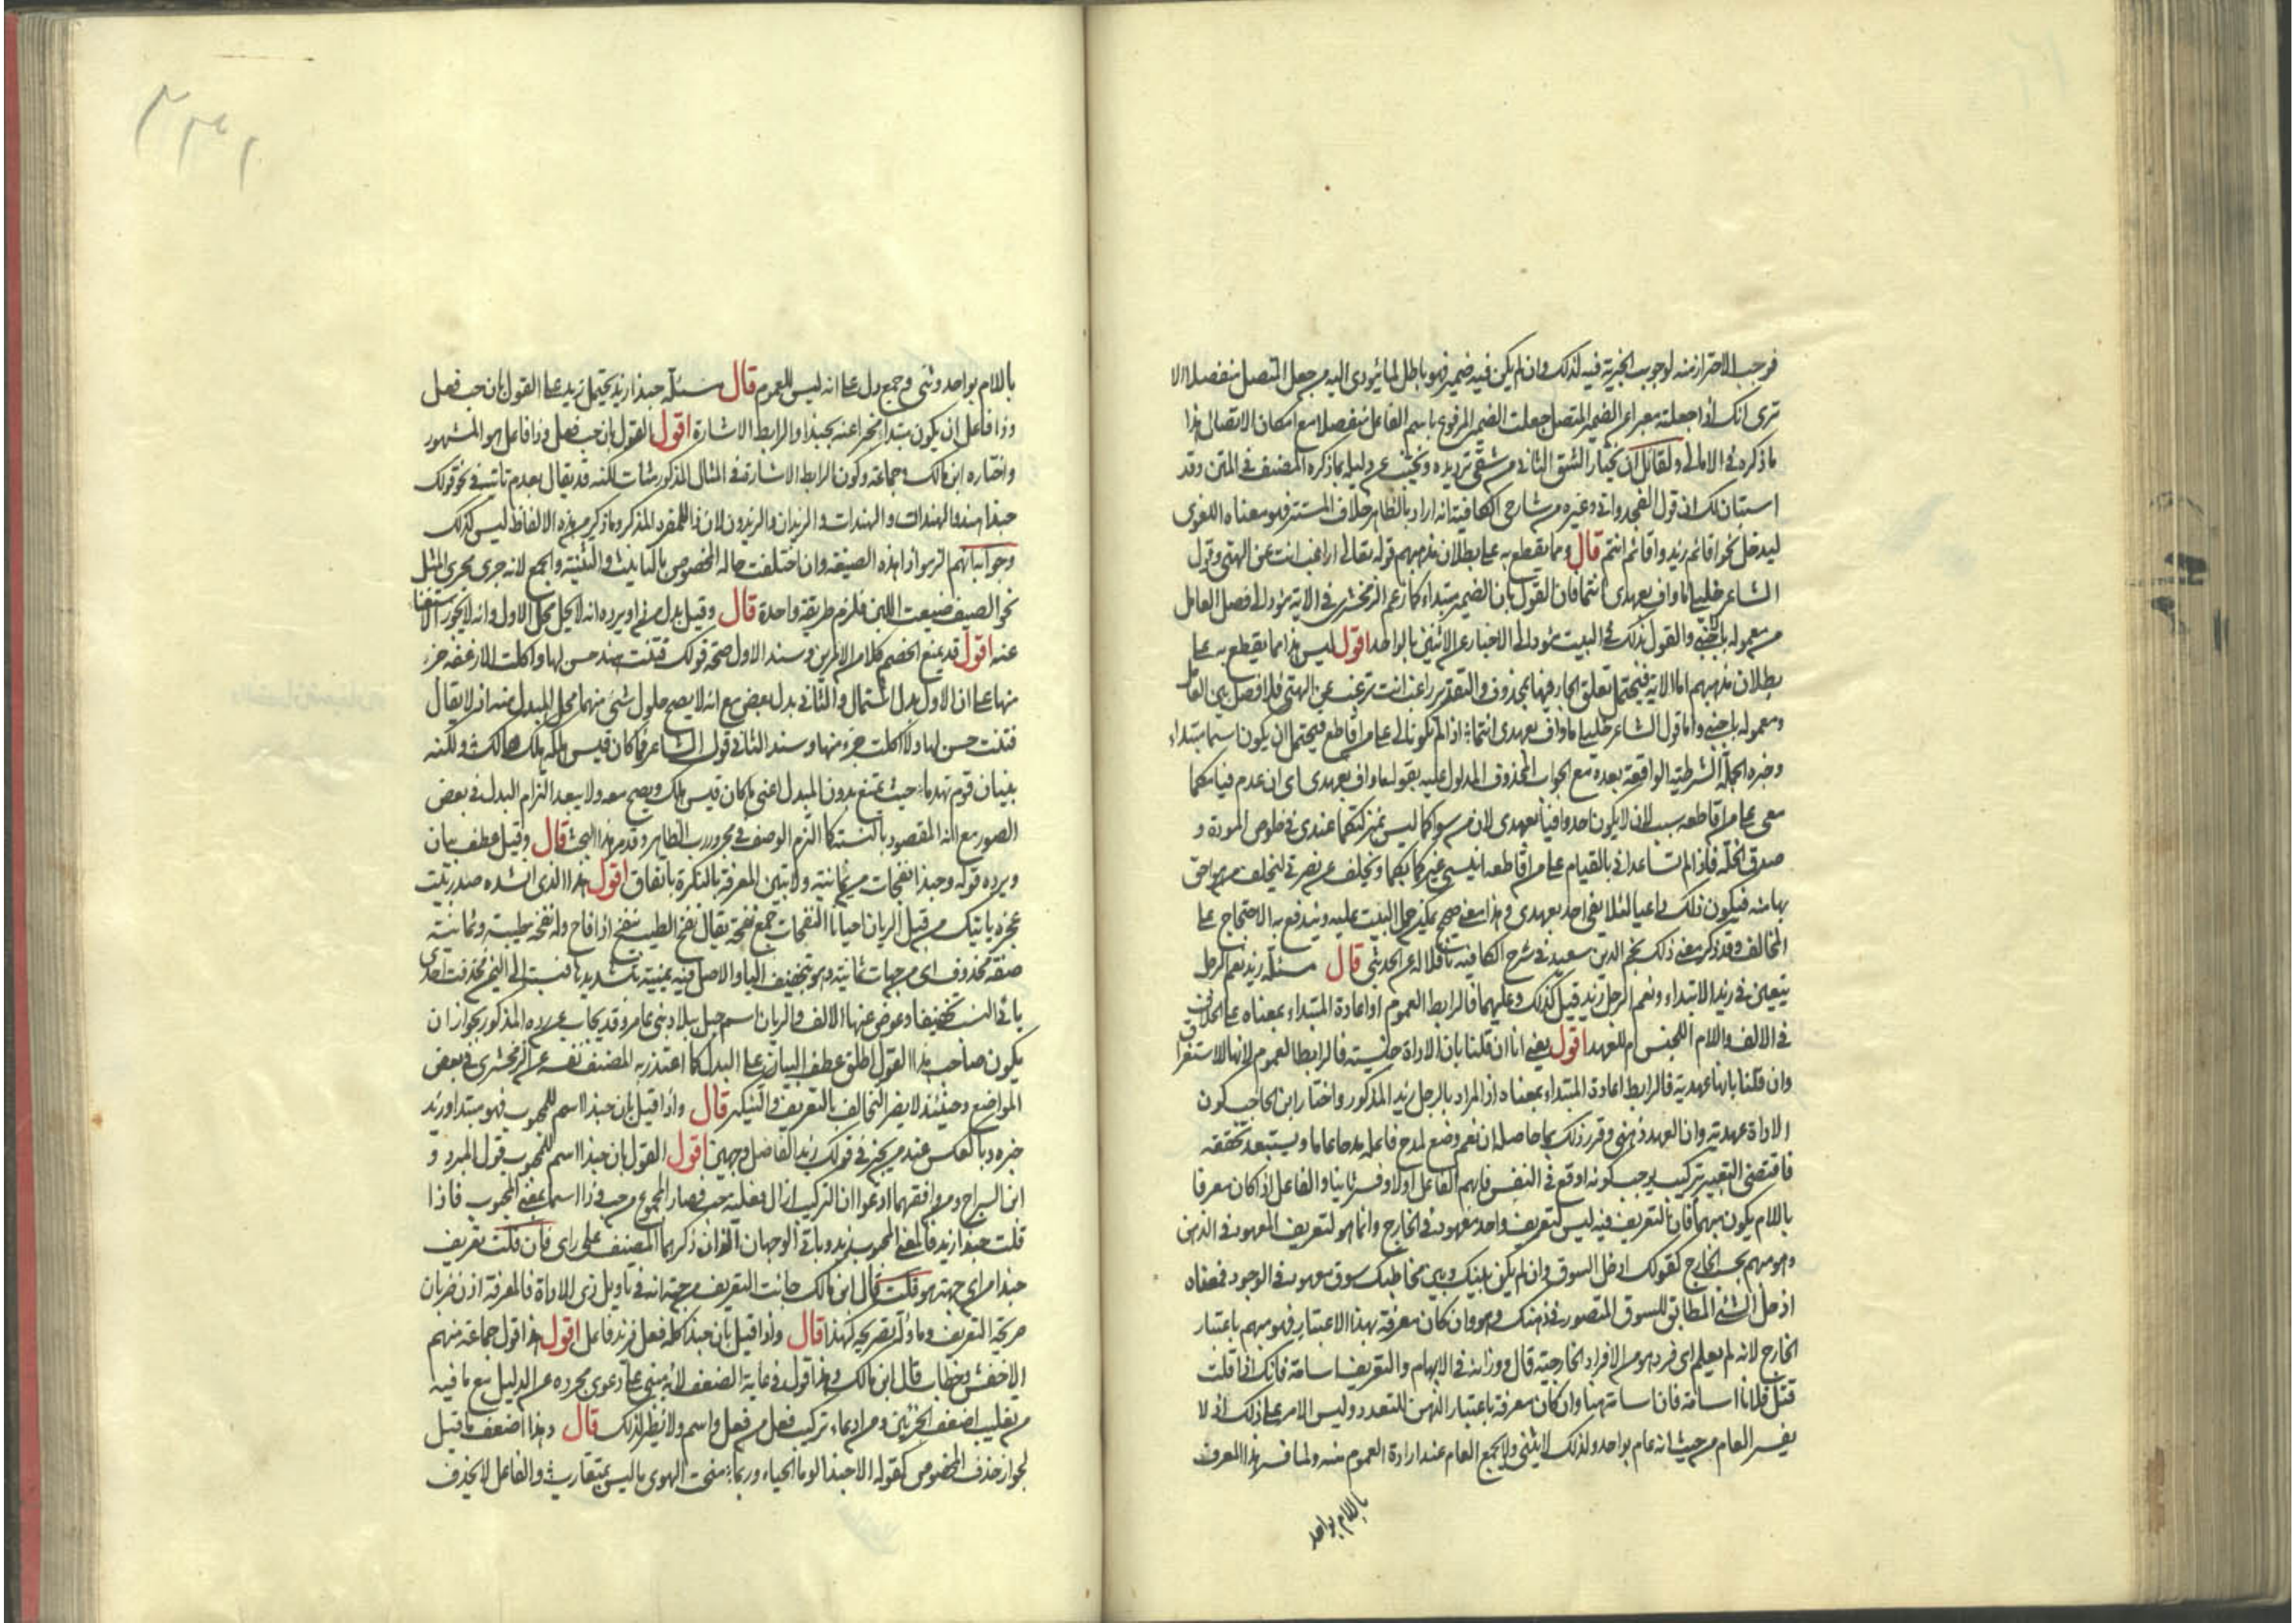 فوجب الاحتراز منه لوجوب الخبرية فيه لذلك وان لم يكن فيه ضمير فهو باطل لما يؤدى اليه من جعل المتصل منفصلا الا
ترى انك اذا جعلته معرا عن الضمير المتصل جعلت الضمير المرفوع باسم الفاعل منفصلا مع امكان الاتصال هذا
ما ذكره فى الامالى ولقائل ان يختار الشق الثانى من شقى ترديده ويجيب عن دليله بما ذكره المصنف فى المتن وقد
استبان لك ان قول الفجدوانى وغيره من شارحى الكافية انه اراد بالظاهر خلاف المستتر فهو معناه اللغوى
ليدخل نحو اقائم زيد واقائم انتم قال ومما يقطع به على بطلان مذهبهم قوله تعالى اراغب انت عن الهتى وقول
الشاعر خليلى ما واف بعهدى انتما فان القول بان الضمير مبتداء كما زعم الزمخشرى فى الاية مؤد الى فصل العامل
من معموله باجنبى والقول بذلك فى البيت مؤد الى الاخبار عن الاثنين بالواحد اقول ليس هذا مما يقطع به على
بطلان مذهبهم اما الاية فيحتمل تعلق الجار فيها بمحذوف والتقدير راغب انت ترغب عن الهتى فلا فصل بين العامل
ومعموله باجنبى واما قول الشاعر خليلى ما واف بعهدى انتما اذا لم تكونا لى على من اقاطع فيحتمل ان يكون انتما مبتداء
وخبره الجملة الشرطية الواقعة بعده مع الجواب المحذوف المدلول عليه بقوله ما واف بعهدى اى ان عدم قيامكما
معى على من اقاطعه سبب لان لا يكون احد وافيا بعهدى لان من سواكما ليس بمنزلتكما عندى فى خلوص المودة و
صدق الخلة فاذا لم تساعدانى بالقيام على من اقاطعه غيركما بكما وتخلف عن نصرتى
بها منه فيكون ذلك داعيا لئلا يفى احد بعهدى وهذا معنى صحيح يمكن حمل البيت عليه ويندفع به الاحتجاج على
المخالف وقد ذكر معنى ذلك نجم الدين سعيد فى شرح الكافية ناقلا له عن الحديثى قال مسئلة زيد نعم الرجل
يتعين فى زيد الابتداء ونعم الرجل زيد قيل كذلك وعليهما فالرابط العموم او اعادة المبتداء بمعناه على الخلاف
فى الالف واللام اللجنس ام للعهد اقول يعنى انا ان قلنا بان الاداة جنسية فالرابط العموم لانها للاستغراق
وان قلنا بانها عهدية فالرابط اعادة المبتداء بمعناه اذ المراد بالرجل زيد المذكور واختار ابن الحاجب كون
الاداة عهدية وان العهد ذهنى وقرر ذلك بما حاصله ان نعم وضع لمدح فاعله مدحا عاما ويستبعد تحققه
فاقتضى التعبير تركيب يوجب كونه اوقع فى النفس فابهم الفاعل اولا وفسر ثانيا والفاعل اذا كان معرفا
باللام يكون مبهما فان التعريف فيه ليس لتعريف واحد معهود فى الخارج وانما هو لتعريف المعهود فى الذهن
وهو مبهم بحسب الخارج كقولك ادخل السوق وان لم يكن بينك وبين مخاطبك سوق معهود فى الوجود فمعناه
ادخل الشئ المطابق للسوق المتصور فى ذهنك وهو وان كان معرفة بهذا الاعتبار فهو مبهم باعتبار
الخارج لانه لم يعلم اى فرد هو من الافراد الخارجية قال ووزانه فى الابهام والتعريف اسامة فانك اذا قلت
قتل فلان اسامة فان اسامة مبهما وان كان معرفة باعتبار الذهن للتعدد وليس الامر على ذلك اذ لا
يفسر العام من حيث انه عام بواحد ولذلك لا يثنى ولا يجمع العام عند ارادة العموم منه ولما فسر هذا المعرف
باللام بواحد
باللام بواحد وثنى وجمع دل على انه ليس للعموم قال مسئلة حبذا زيد يحتمل زيد على القول بان حب فعل
وذا فاعل ان يكون مبتداء مخبرا عنه بحبذا والرابط الاشارة اقول القول بان حب فعل وذا فاعل هو المشهور
واختاره ابن مالك وجماعة وكون الرابط الاشارة فى المثال المذكور متات لكنه قد يقال بعدم تاتيه فى نحو قولك
حبذا هند والهندان والهندات والزيدان والزيدون لان ذا للمفرد المذكر وما ذكر من هذه الالفاظ ليس كذلك
وجوابه انهم الزموا ذا هذه الصيغة وان اختلفت حالة المخصوص بالتانيث والتثنية والجمع لانه جرى مجرى المثل
نحو الصيف ضيعت اللبن فلزم طريقة واحدة قال وقيل بدل من ذا ويرده انه لا يحل محل الاول وانه لا يجوز الاستغناء
عنه اقول قد يمنع الخصم كلا من الامرين وسند الاول صحة قولك فتنت هند حسن لها واكلت الارغفة جزء
منها على ان الاول بدل اشتمال والثانى بدل بعض مع انه لا يصح حلول شئ منهما محل المبدل منه اذ لا يقال
فتنت حسن لها ولا اكلت جزء منها وسند الثانى قول الشاعر فما كان قيس هلكه هلك هالك ولكنه
بنيان قوم تهدما حيث يمتنع بدون المبدل اعنى ما كان قيس هلك ويصح معه ولا يبعد التزام البدل فى بعض
الصور مع انه المقصود بالنسبة كما التزم الوصف فى مجرور رب الظاهر وقد مر هذا البحث قال وقيل عطف بيان
ويرده قوله وحبذا نفحات من يمانية ولا تبين المعرفة بالنكرة باتفاق اقول هذا الذى انشده صدر بيت
عجزه ياتيك من قبل الريان احيانا النفحات جمع نفحة يقال نفح الطيب ينفح اذا فاح وله نفحة طيبة ويمانية
صفة محذوف اى من جهات يمانية وهو بتخفيف الياء والاصل فيه يمنية بتشديدها نسبة الى اليمن فحذفت احدى
يائى النسب تخفيفا وعوض عنها الالف والريان اسم جبل ببلاد بنى عامر وقد يجاب عن رده المذكور بجواز ان
يكون صاحب هذا القول اطلق عطف البيان على البدل كما اعتذر به المصنف نفسه عن الزمخشرى فى بعض
المواضع وحينئذ لا يضر التخالف بالتعريف والتنكير قال واذا قيل بان حبذا اسم للمحبوب فهو مبتدا وزيد
خبره وبالعكس عند من يجيز فى قولك زيد الفاضل وجهين اقول القول بان حبذا اسم للمحبوب قول المبرد و
ابن السراج ومن وافقهما ادعوا ان التركيب ازال فعلية حب فصار المجموع من حب وذا اسما بمعنى المحبوب فاذا
قلت حبذا زيد فالمعنى المحبوب زيد وياتى الوجهان اللذان ذكرهما المصنف على راى فان قلت تعريف
حبذا من اى جهة هو قلت قال ابن مالك جاءت التعريف من جهة انه فى تاويل ذى الاداة فالمعرفة اذن ضربان
صريحة التعريف وما ؤل بصريحة كهذا قال واذا قيل بان حبذا كله فعل فزيد فاعل اقول هذا قول جماعة منهم
الاخفش وخطاب قال ابن مالك وهذا قول فى غاية الضعف لانه مبنى على دعوى مجرده عن الدليل مع ما فيه
من تغليب اضعف الجزئين ومن ادعاء تركيب فعل من فعل واسم ولا نظير لذلك قال وهذا اضعف ما قيل
لجواز حذف المخصوص كقوله الا حبذا لوما الحياء وربما منحت الهوى ما ليس بمتقارب والفاعل لا يحذف